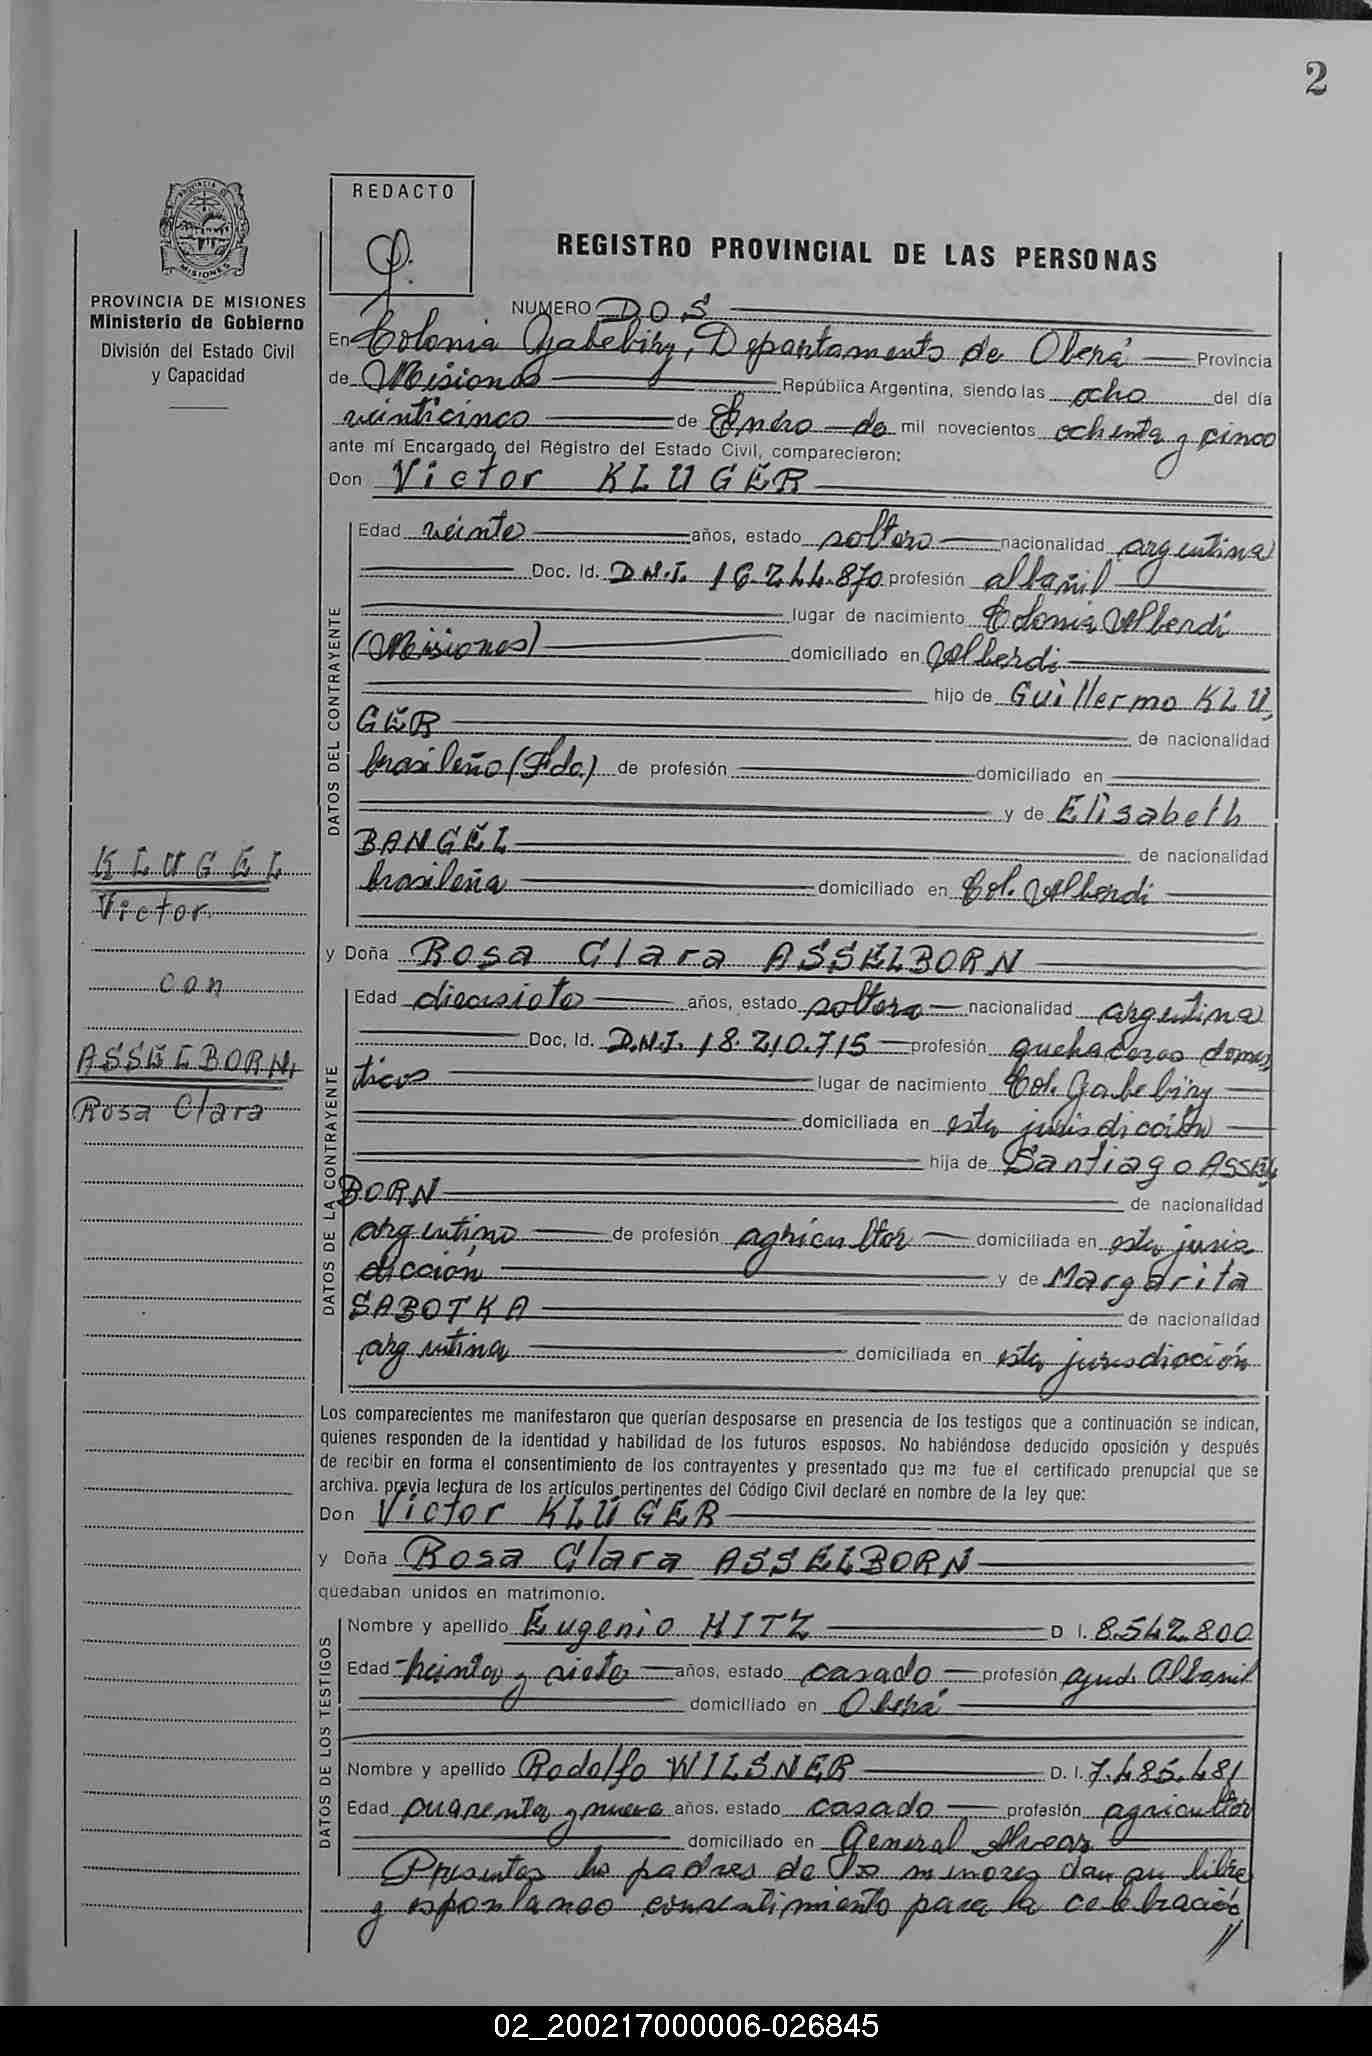 2
REDACTO
REGISTRO PROVINCIAL DE LAS PERSONAS
PROVINCIA DE MISIONES
Ministerio de Gobierno
División del Estado Civil
y Capacidad
NUMERO DOS
En Colonia Yabebiry, Departamento de Oberá Provincia
de Misiones República Argentina, siendo las ocho del día
veinticinco de Enero de mil novecientos ochenta y cinco
ante mí Encargado del Registro del Estado Civil, comparecieron:
Don Victor KLUGER
DATOS DEL CONTRAYENTE
Edad veinte años, estado soltero nacionalidad argentina
Doc. Id. D.N.I. 16.244.870 profesión albañil
lugar de nacimiento Colonia Alberdi
(Misiones) domiciliado en Alberdi
hijo de Guillermo KLU
GER de nacionalidad
brasileño (Fdo.) de profesión domiciliado en
y de Elisabeth
BANGEL de nacionalidad
brasileña domiciliado en Col. Alberdi
KLUGEL
Victor
con
ASSELBORN,
Rosa Clara
y Doña Rosa Clara ASSELBORN
DATOS DE LA CONTRAYENTE
Edad diecisiete años, estado soltera nacionalidad argentina
Doc. Id. D.N.I. 18.210.715 profesión quehaceres domes
ticos lugar de nacimiento Col. Yabebiry
domiciliada en esta jurisdicción
hija de Santiago ASSEL
BORN de nacionalidad
argentino de profesión agricultor domiciliada en esta juris
dicción y de Margarita
SABOTKA de nacionalidad
argentina domiciliada en esta jurisdicción
Los comparecientes me manifestaron que querían desposarse en presencia de los testigos que a continuación se indican,
quienes responden de la identidad y habilidad de los futuros esposos. No habiéndose deducido oposición y después
de recibir en forma el consentimiento de los contrayentes y presentado que me fue el certificado prenupcial que se
archiva. previa lectura de los artículos pertinentes del Código Civil declaré en nombre de la ley que:
Don Victor KLUGER
y Doña Rosa Clara ASSELBORN
quedaban unidos en matrimonio.
DATOS DE LOS TESTIGOS
Nombre y apellido Eugenio HITZ D. I. 8.542.800
Edad treinta y siete años, estado casado profesión ayud. Albañil
domiciliado en Oberá
Nombre y apellido Rodolfo WILSNER D. I. 7.485.481
Edad cuarenta y nueve años, estado casado profesión agricultor
domiciliado en General Alvear
Presentes los padres de los menores dan su libre
y espontaneo consentimiento para la celebración
//
02_200217000006-026845